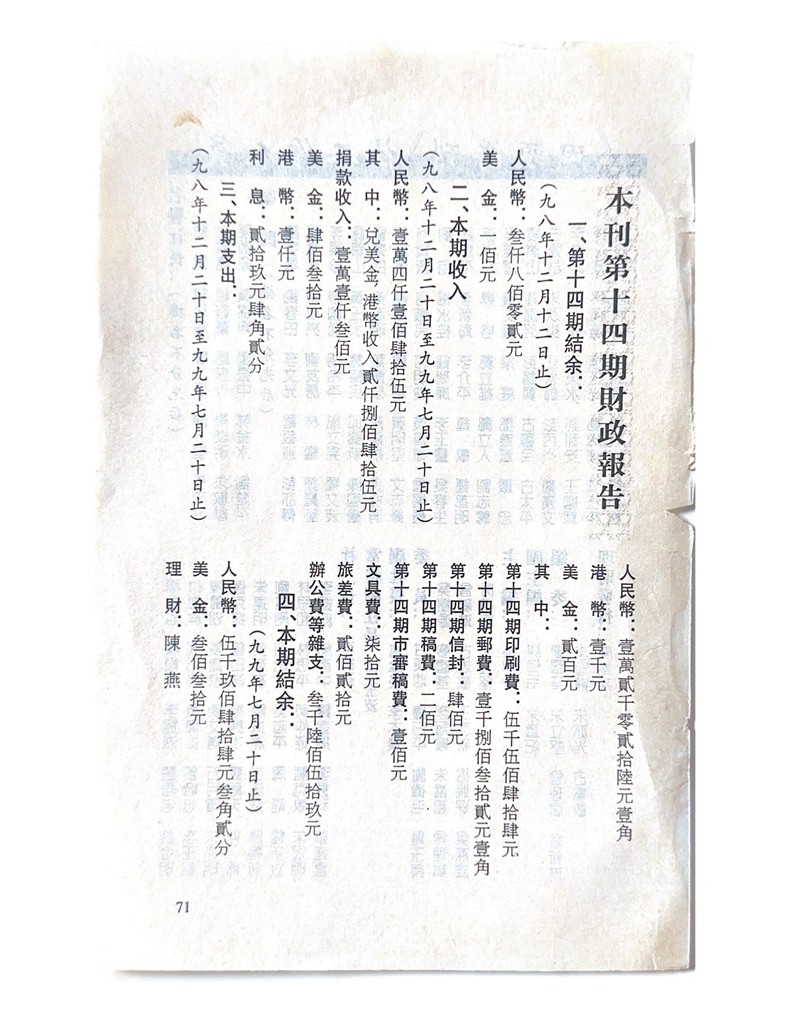 本刊第十四期財政報告
一、第十四期結余：
（九八年十二月十二日止）
人民幣：叁仟八佰零貳元
美　金：一佰元
二、本期收入
（九八年十二月二十日至九九年七月二十日止）
人民幣：壹萬四仟壹佰肆拾伍元
其　中：兌美金，港幣收入貳仟捌佰肆拾伍元
捐款收入：壹萬壹仟叁佰元
美　金：肆佰叁拾元
港　幣：壹仟元
利　息：貳拾玖元肆角貳分
三、本期支出：
（九八年十二月二十日至九九年七月二十日止）
人民幣：壹萬貳千零貳拾陸元壹角
港　幣：壹千元
美　金：貳百元
其　中：
第十四期印刷費：伍千伍佰肆拾肆元
第十四期郵費：壹千捌佰叁拾貳元壹角
第十四期信封：肆佰元
第十四期稿費：二佰元
第十四期市審稿費：壹佰元
文具費：柒拾元
旅差費：貳佰貳拾元
辦公費等雜支：叁千陸佰伍拾玖元
四、本期結余：
（九九年七月二十日止）
人民幣：伍千玖佰肆拾肆元叁角貳分
美　金：叁佰叁拾元
理　財：陳　燕
71